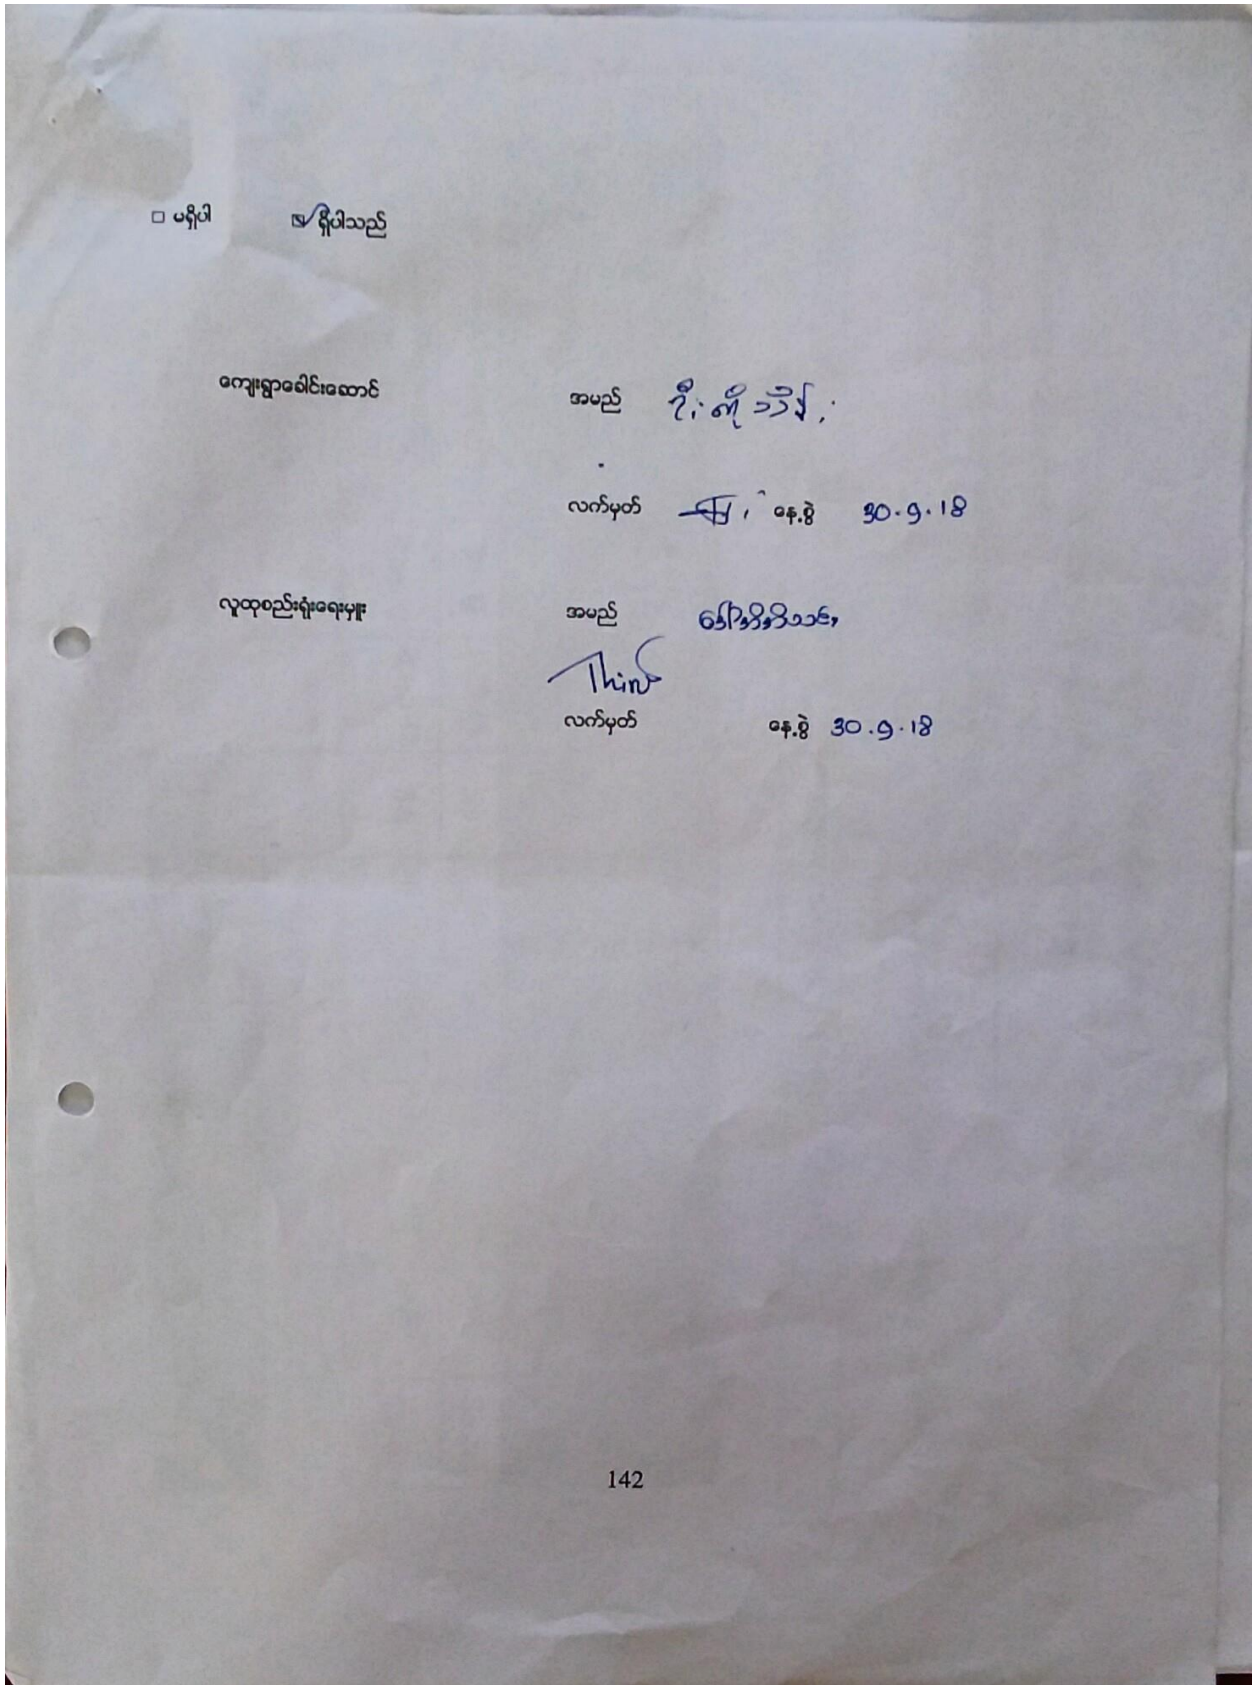 □ မရှိပါ ☑ ရှိပါသည်
ကျေးရွာခေါင်းဆောင် အမည် ဦးကိုသိန်း
လက်မှတ် နေ့စွဲ 30.9.18
လူထုစည်းရုံးရေးမှူး အမည် ဒေါ်အိအိသင်း
လက်မှတ် နေ့စွဲ 30.9.18
142